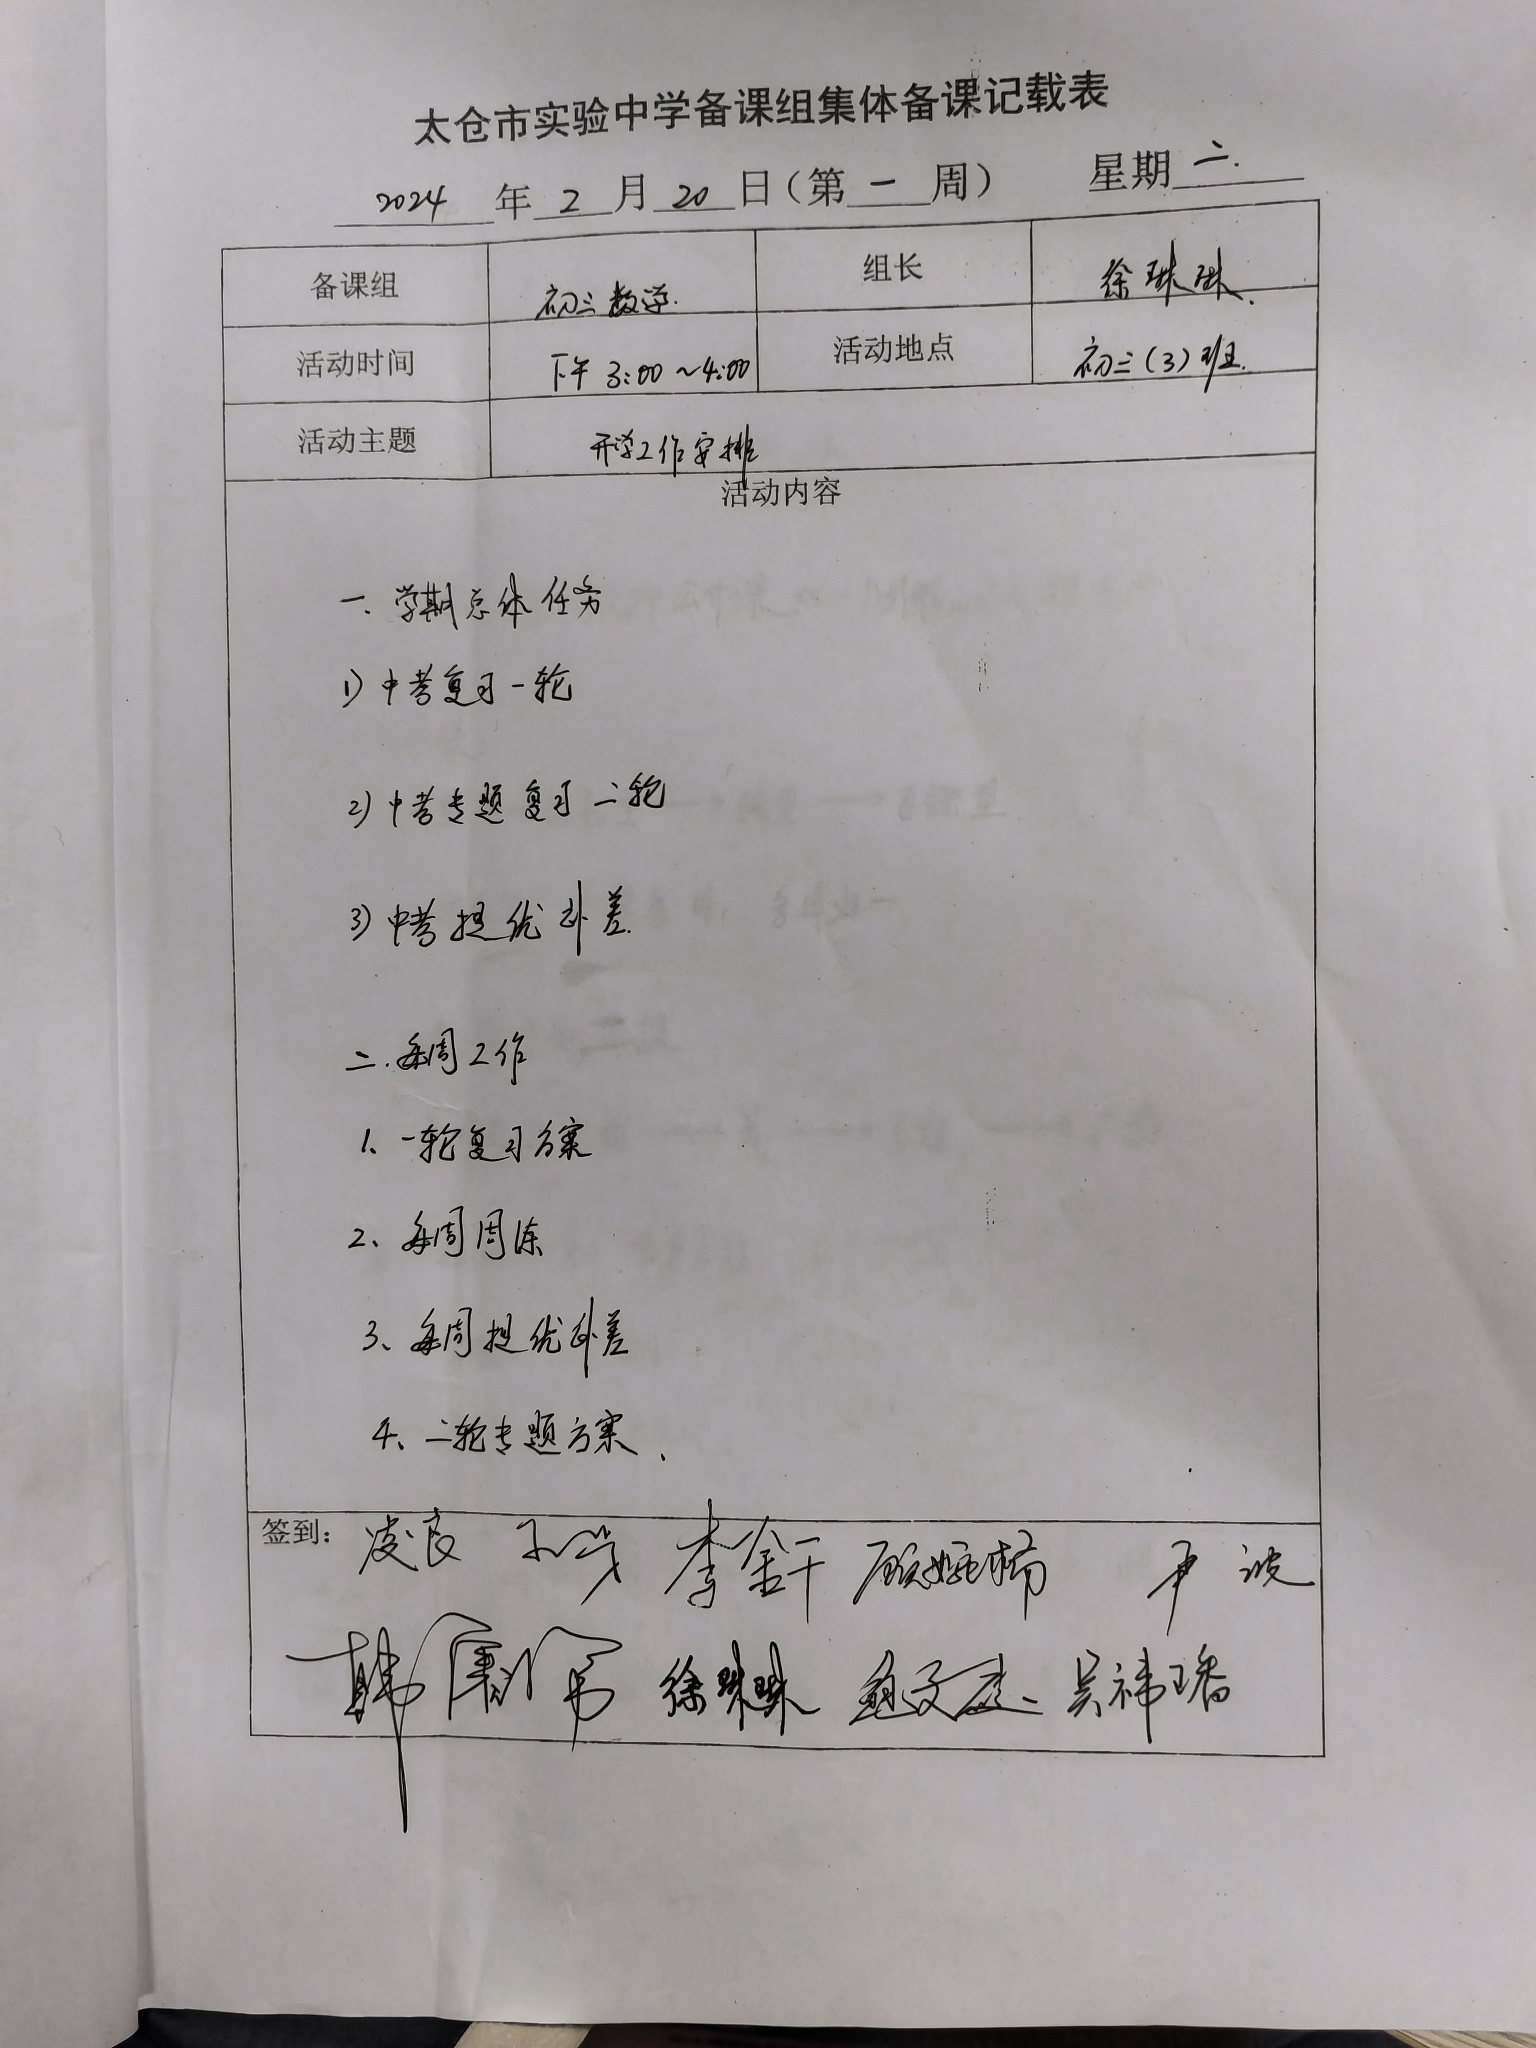 太仓市实验中学备课组集体备课记载表
2024 年 2 月 20 日（第 一 周） 星期 二.
备课组 初三数学. 组长 徐琳琳.
活动时间 下午 3:00～4:00 活动地点 初三(3)班.
活动主题 开学工作安排
活动内容
一、学期总体任务
1) 中考复习一轮
2) 中考专题复习二轮
3) 中考提优补差.
二.每周工作
1、一轮复习方案
2、每周周练
3、每周提优补差
4、二轮专题方案.
签到： 凌良 李金干 尹波
徐琳琳 吴祎璠